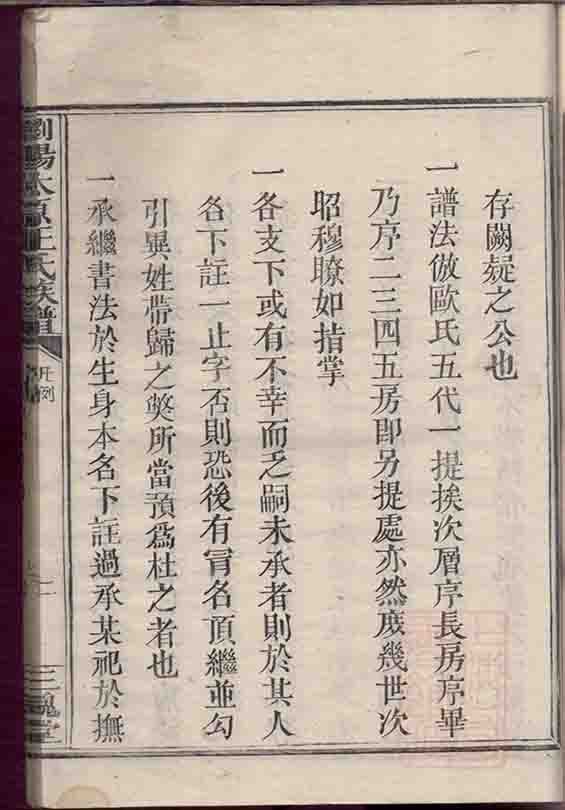 存闕疑之公也
一譜法倣歐氏五代一提挨次層序長房序畢
乃序二三四五房即另提處亦然庶幾世次
昭穆瞭如指掌
一各支下或有不幸而乏嗣未承者則於其人
名下註一止字否則恐後有冐名頂繼並勾
引異姓帶歸之獘所當預爲杜之者也
一承繼書法於生身本名下註過承某祀於撫
瀏陽太原王氏族譜
凡例
三槐堂